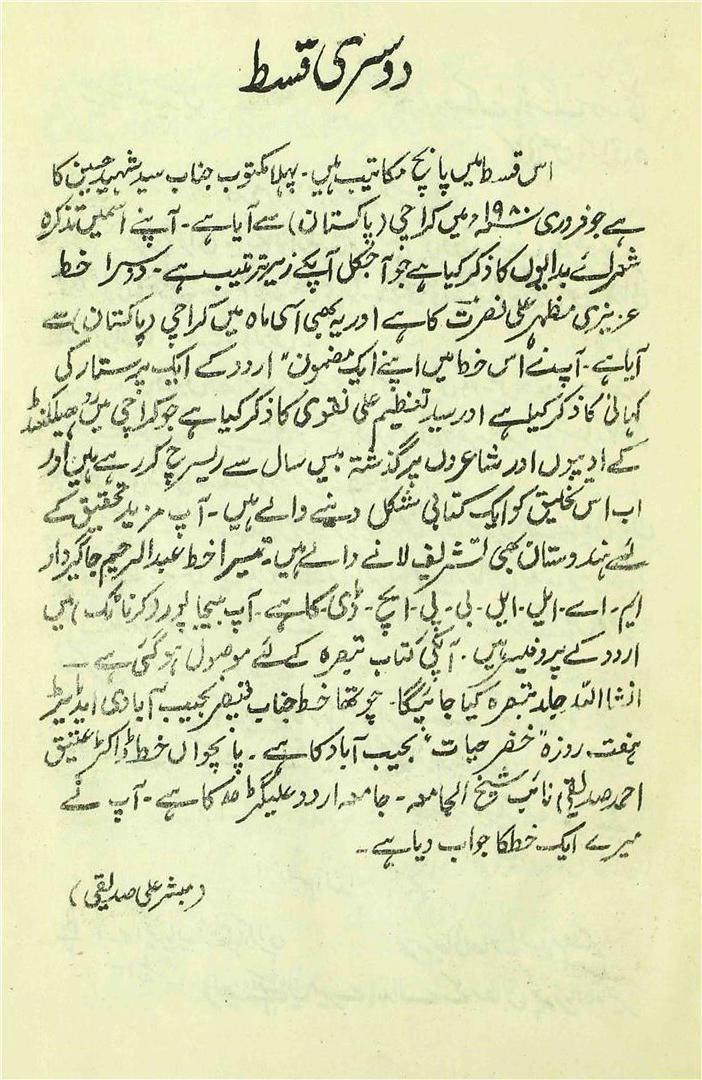 دوسری قسط
اس قسط میں پانچ مکاتیب ہیں۔ پہلا مکتوب جناب سید شہید حسین کا
ہے جو فروری ۱۹۸۰ء میں کراچی (پاکستان) سے آیا ہے۔ آپنے اسمیں تذکرہ
شعرائے بدایوں کا ذکر کیا ہے جو آجکل آپکے زیر ترتیب ہے۔ دوسرا خط
عزیزی مظہر علی نصرت کا ہے اور یہ بھی اسی ماہ میں کراچی (پاکستان) سے
آیا ہے۔ آپنے اس خط میں اپنے ایک مضمون "اردو کے ایک پرستار کی
کہانی کا ذکر کیا ہے اور سید تنظیم علی نقوی کا ذکر کیا ہے جو کراچی میں روہیلکھنڈ
کے ادیبوں اور شاعروں پر گذشتہ بیس سال سے ریسرچ کر رہے ہیں اور
اب اس تخلیق کو ایک کتابی شکل دینے والے ہیں۔ آپ مزید تحقیق کے
لئے ہندوستان بھی تشریف لانے والے ہیں۔ تیسرا خط عبدالرحیم جاگیردار
ایم۔ اے۔ ایل۔ ایل۔ بی۔ پی۔ ایچ۔ ڈی کا ہے۔ آپ بیجاپور (کرناٹک) میں
اردو کے پروفیسر ہیں۔ آپکی کتاب تبصرہ کے لئے موصول ہو گئی ہے۔
انشاءاللہ جلد تبصرہ کیا جائیگا۔ چوتھا خط جناب قیصر نجیب آبادی ایڈیٹر
ہفت روزہ "خضر حیات" نجیب آباد کا ہے۔ پانچواں خط ڈاکٹر عتیق
احمد صدیقی نائب شیخ الجامعہ۔ جامعہ اردو علیگڑھ کا ہے۔ آپ نے
میرے ایک خط کا جواب دیا ہے۔
(مبشر علی صدیقی)